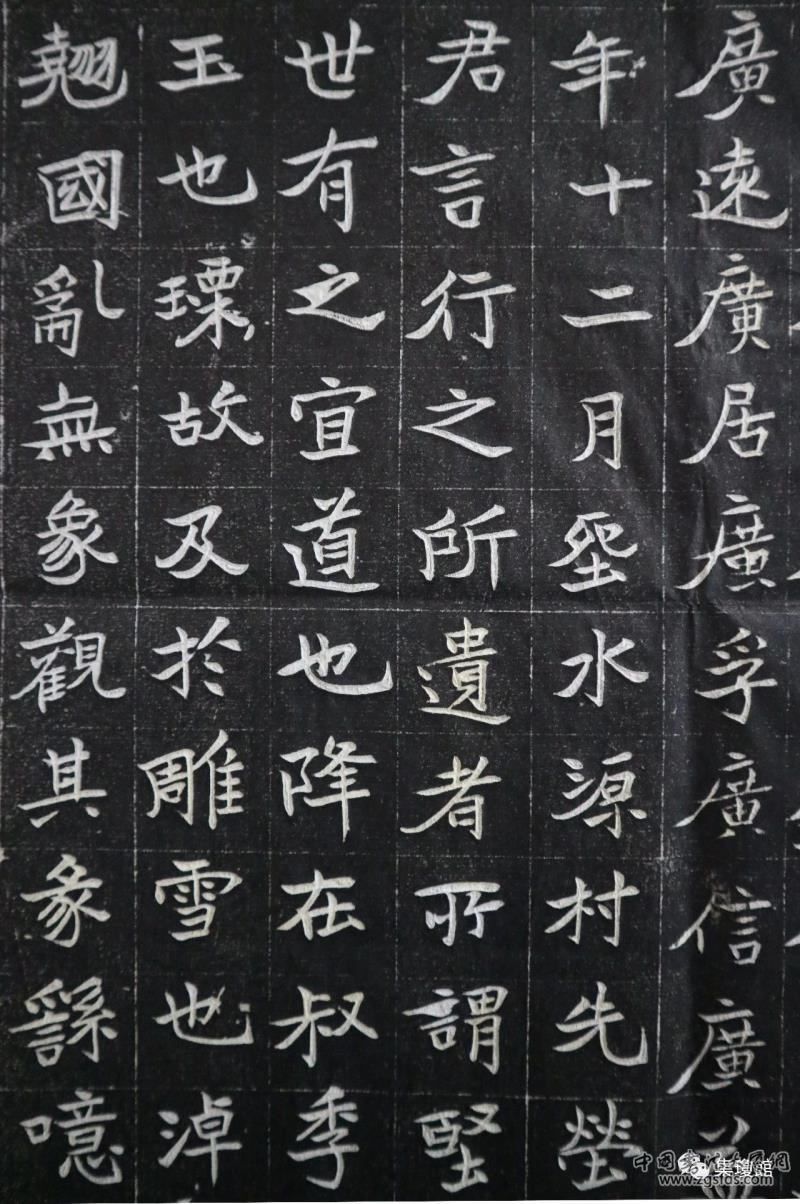 廣遠廣居廣孚廣信廣
年十二月水源村先塋
君言行之所遺者所謂堅
世有之宜道也降在叔季
玉也瑮故及於雕雪也淖
翹國亂無象觀其彖繇噫
集瓊館
www.zgsfds.com